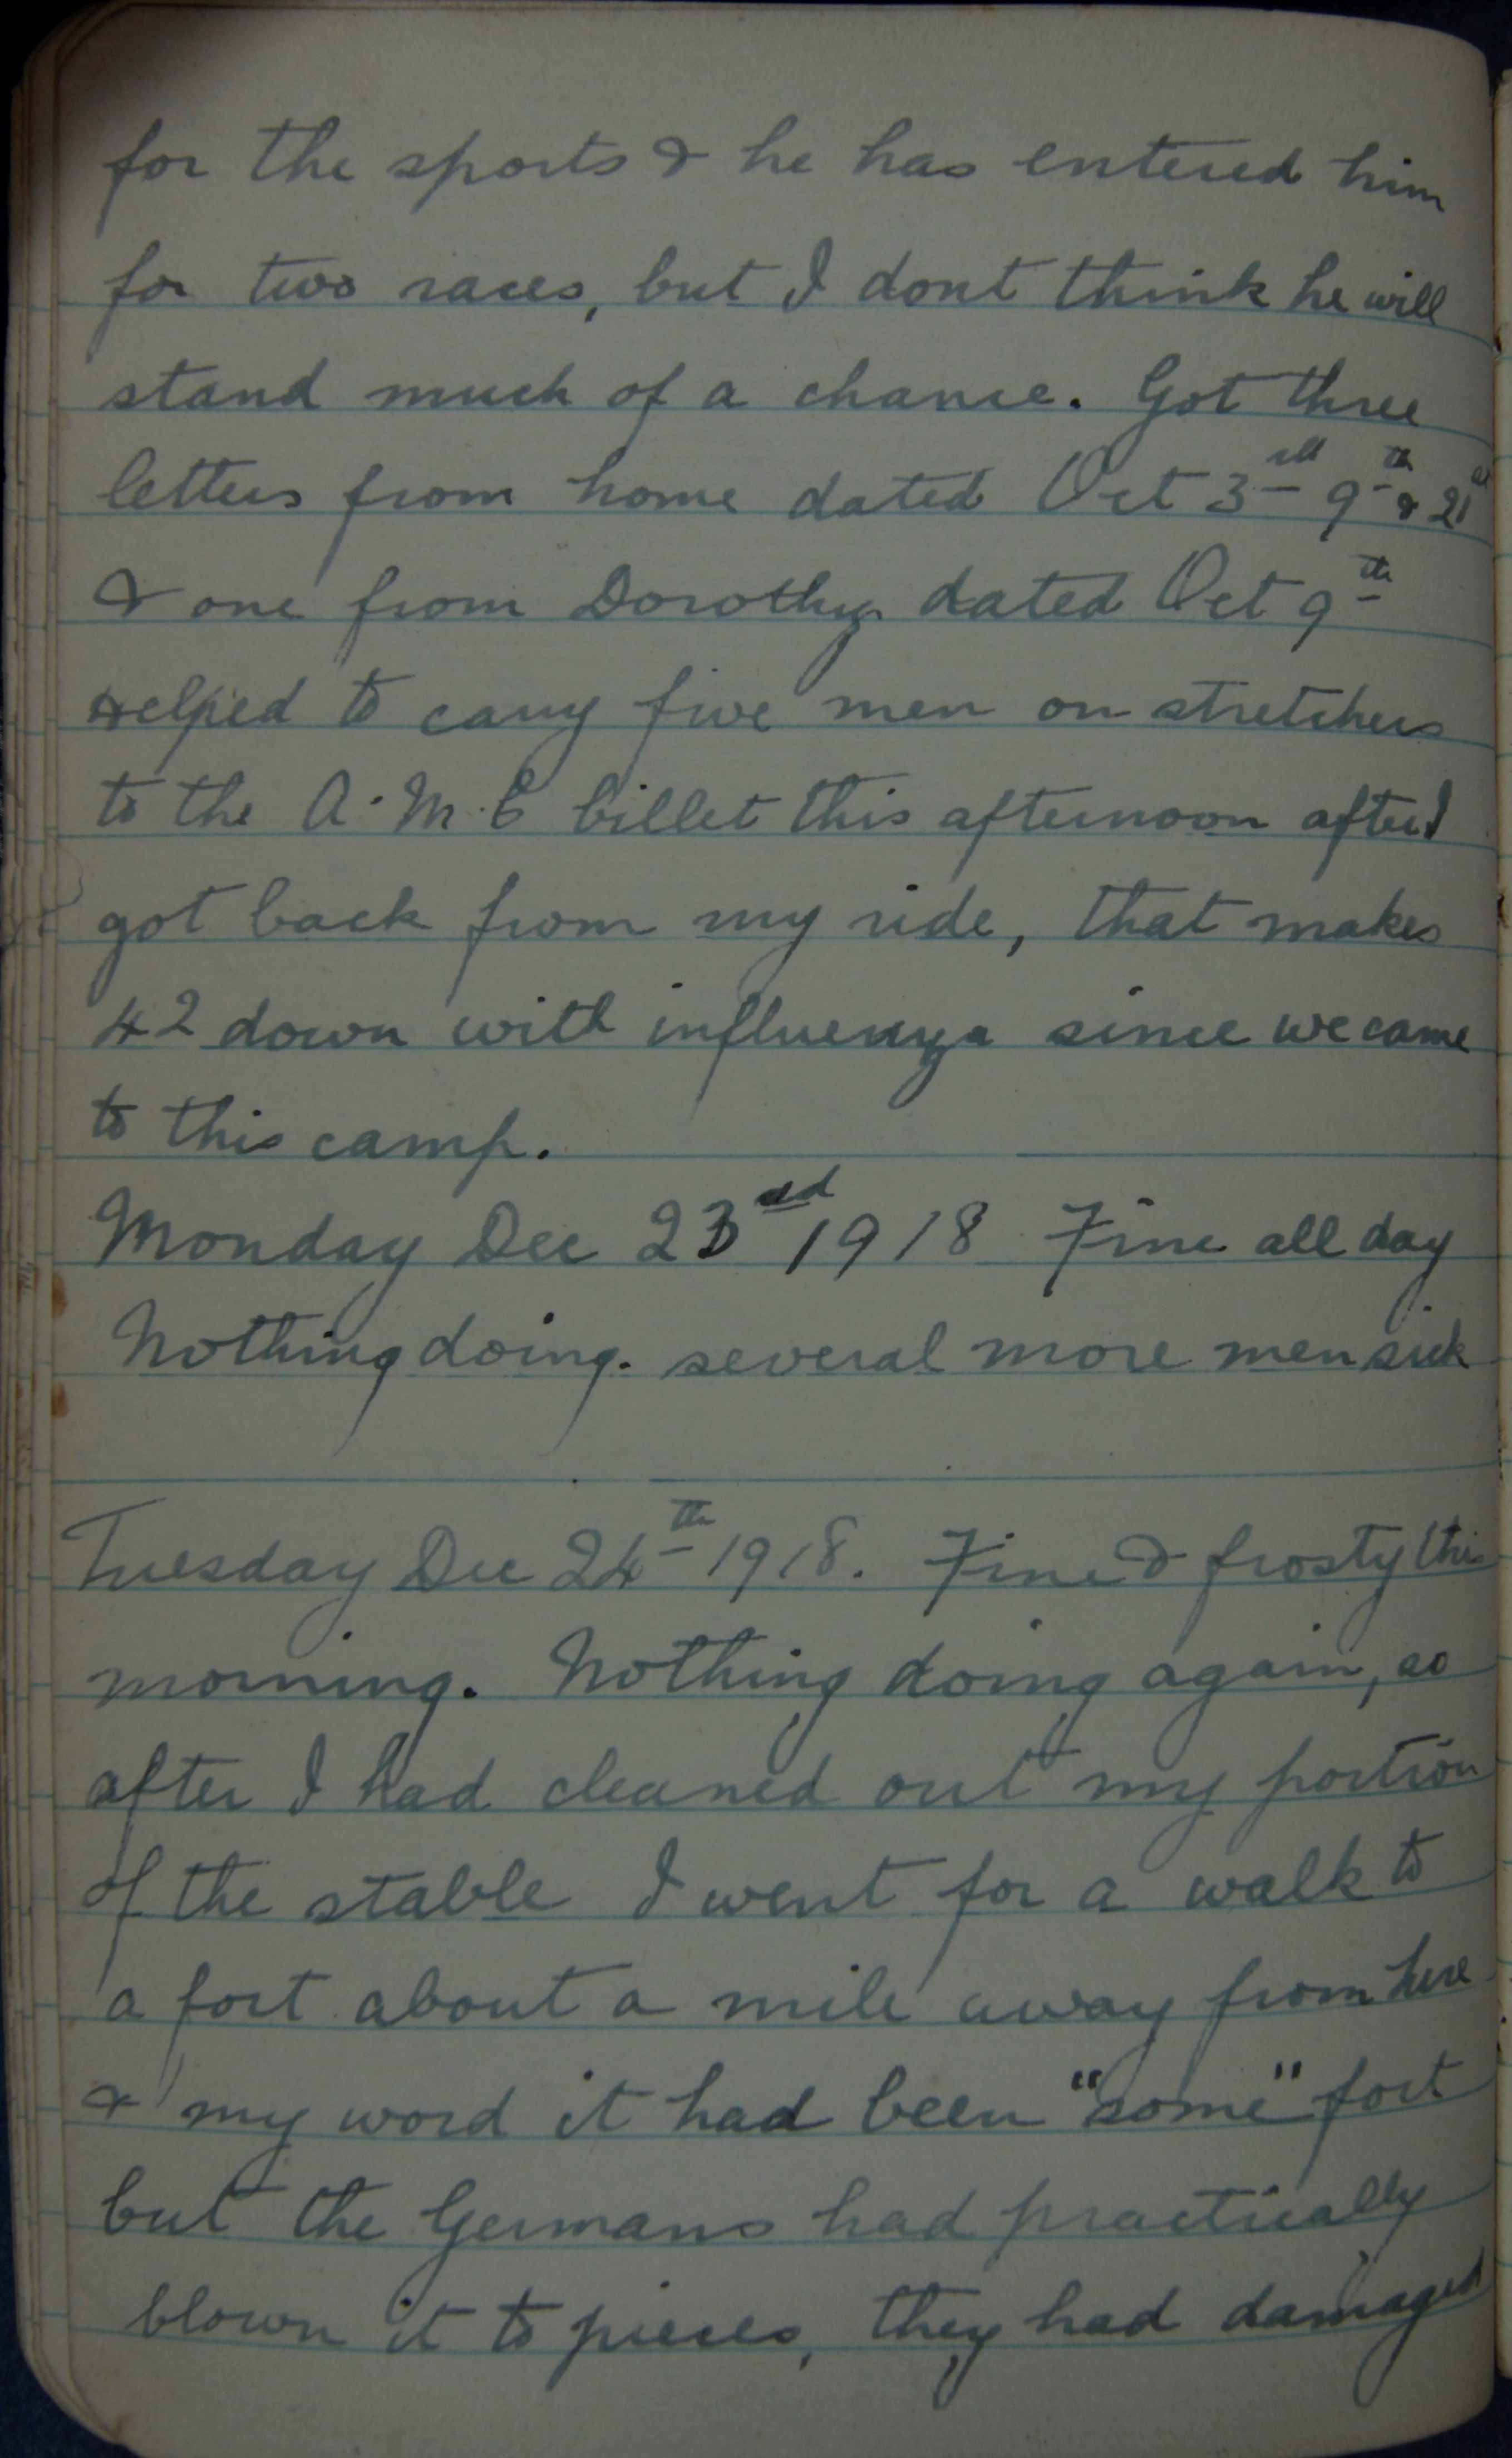 for the sports & he has entered him
for two races, but I dont think he will
stand much of a chance. Got three
letters from home dated Oct 3rd 9th & 21st
& one from Dorothy dated Oct 9th
Helped to carry five men on stretchers
to the A.M.C billet this afternoon after I
got back from my ride, that makes
42 down with influenza since we came
to this camp.
Monday Dec 23rd 1918 Fine all day
Nothing doing. several more men sick
Tuesday Dec 24th 1918. Fine & frosty this
morning. Nothing doing again, so
after I had cleaned out my portion
of the stable I went for a walk to
a fort about a mile away from here
& my word it had been "some" fort
but the Germans had practically
blown it to pieces, they had damaged